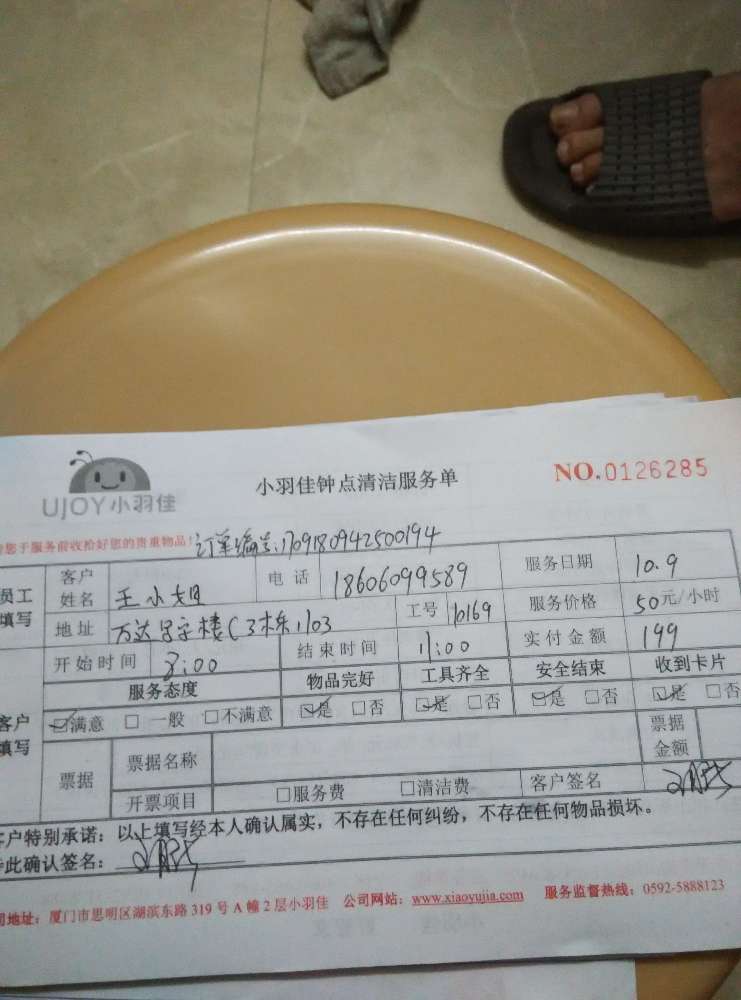 UJOY小羽佳
小羽佳钟点清洁服务单
NO.0126285
您于服务前收拾好您的贵重物品! 订单编号:1709180942500194
员工填写 客户姓名 王小姐 电话 18606099589 服务日期 10.9
地址 万达写字楼C3栋1103 工号 10169 服务价格 50元/小时
开始时间 8:00 结束时间 11:00 实付金额 199
服务态度 物品完好 工具齐全 安全结束 收到卡片
客户填写 ☑满意 □一般 □不满意 ☑是 □否 ☑是 □否 ☑是 □否 ☑是 □否
票据 票据名称 票据金额
开票项目 □服务费 □清洁费 客户签名
客户特别承诺: 以上填写经本人确认属实，不存在任何纠纷，不存在任何物品损坏。
此确认签名:
地址: 厦门市思明区湖滨东路319号A幢2层小羽佳 公司网站: www.xiaoyujia.com 服务监督热线: 0592-5888123